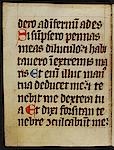 dero ad infernu(m) ades
Si su(m)psero pennas
meas diluculo: (et) habi
tavero i(n) extremis ma
ris Et eni(m) illuc man(us)
tua deducet me: (et) te
nebit me dextera tu
a Et dixi forsitan te
nebre (con)culcabu(n)t me: